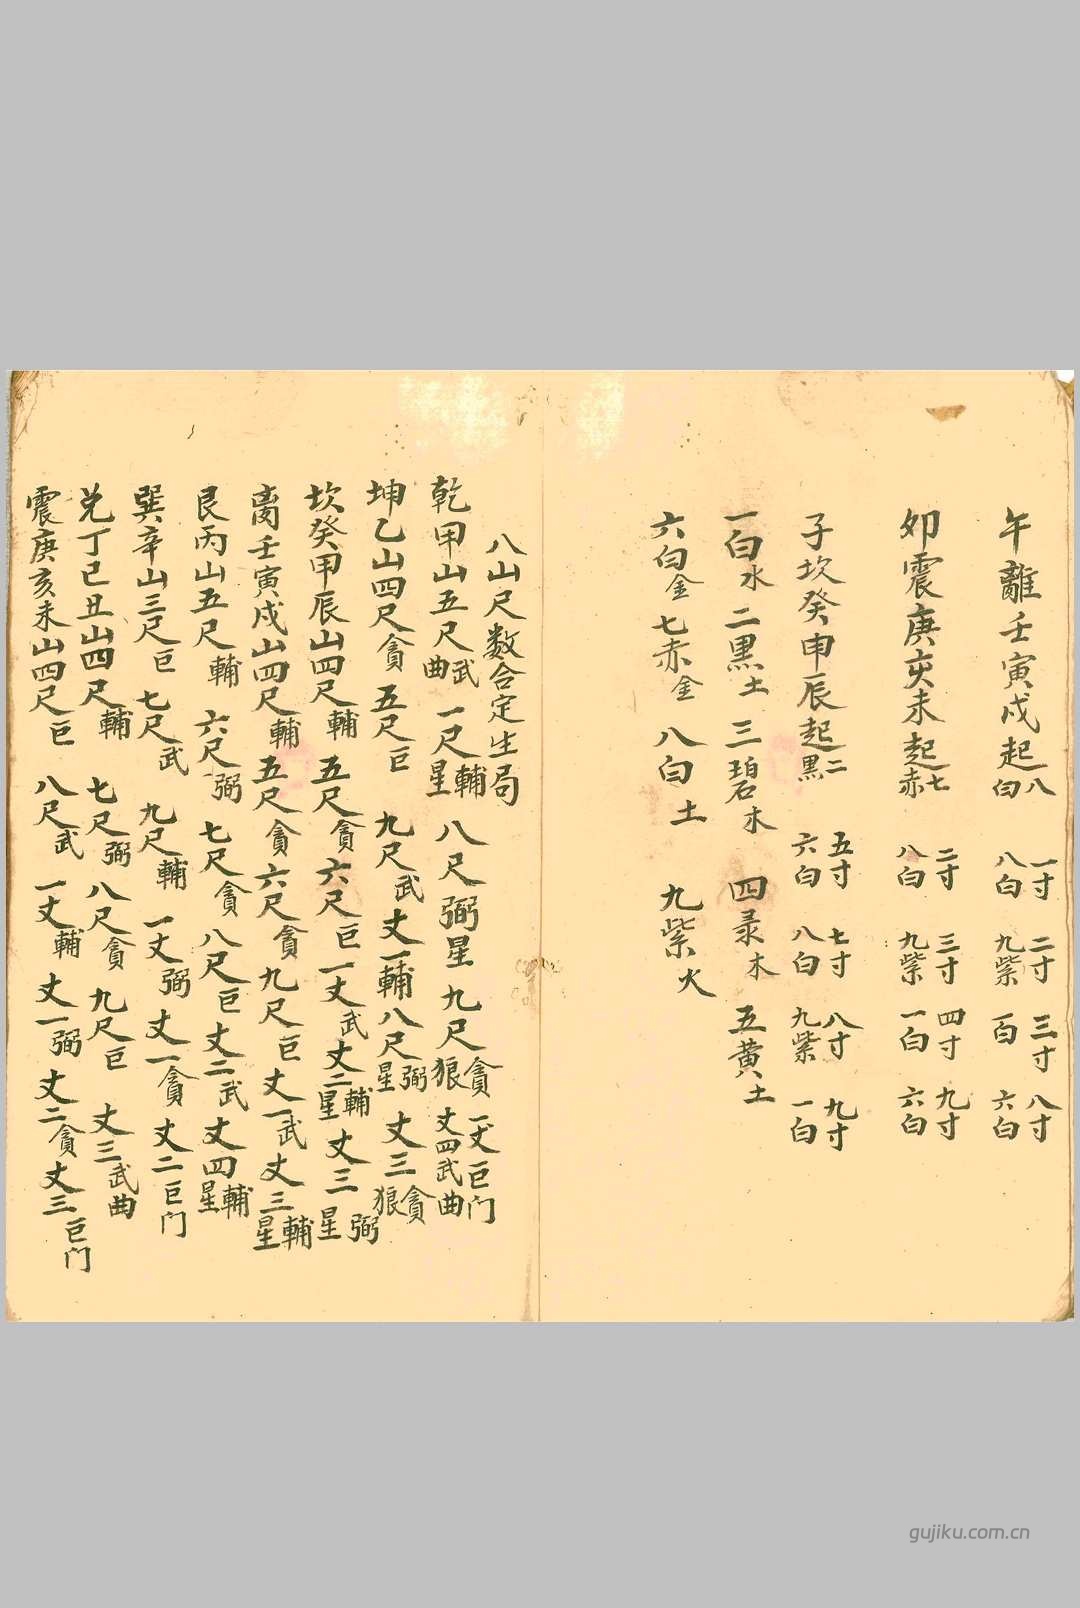 午離壬寅戍起八白 一寸八白 二寸九紫 三寸一白 八寸六白
卯震庚亥未起七赤 二寸八白 三寸九紫 四寸一白 九寸六白
子坎癸申辰起二黑 五寸六白 七寸八白 八寸九紫 九寸一白
一白水 二黑土 三碧木 四录木 五黄土
六白金 七赤金 八白土 九紫火
八山尺数合定生局
乾甲山五尺武曲 一尺輔星 八尺弼星 九尺貪狼 一丈巨门 丈四武曲
坤乙山四尺貪 五尺巨 九尺武 丈一輔 八尺弼星 丈三貪狼
坎癸甲辰山四尺輔 五尺貪 六尺巨 一丈武 丈二輔星 丈三弼星
离壬寅戍山四尺輔 五尺貪 六尺貪 九尺巨 丈一武 丈三輔星
艮丙山五尺輔 六尺弼 七尺貪 八尺巨 丈二武 丈四輔星
巽辛山三尺巨 七尺武 九尺輔 一丈弼 丈一貪 丈二巨门
兑丁巳丑山四尺輔 七尺弼 八尺貪 九尺巨 丈三武曲
震庚亥未山四尺巨 八尺武 一丈輔 丈一弼 丈二貪 丈三巨门
gujiku.com.cn